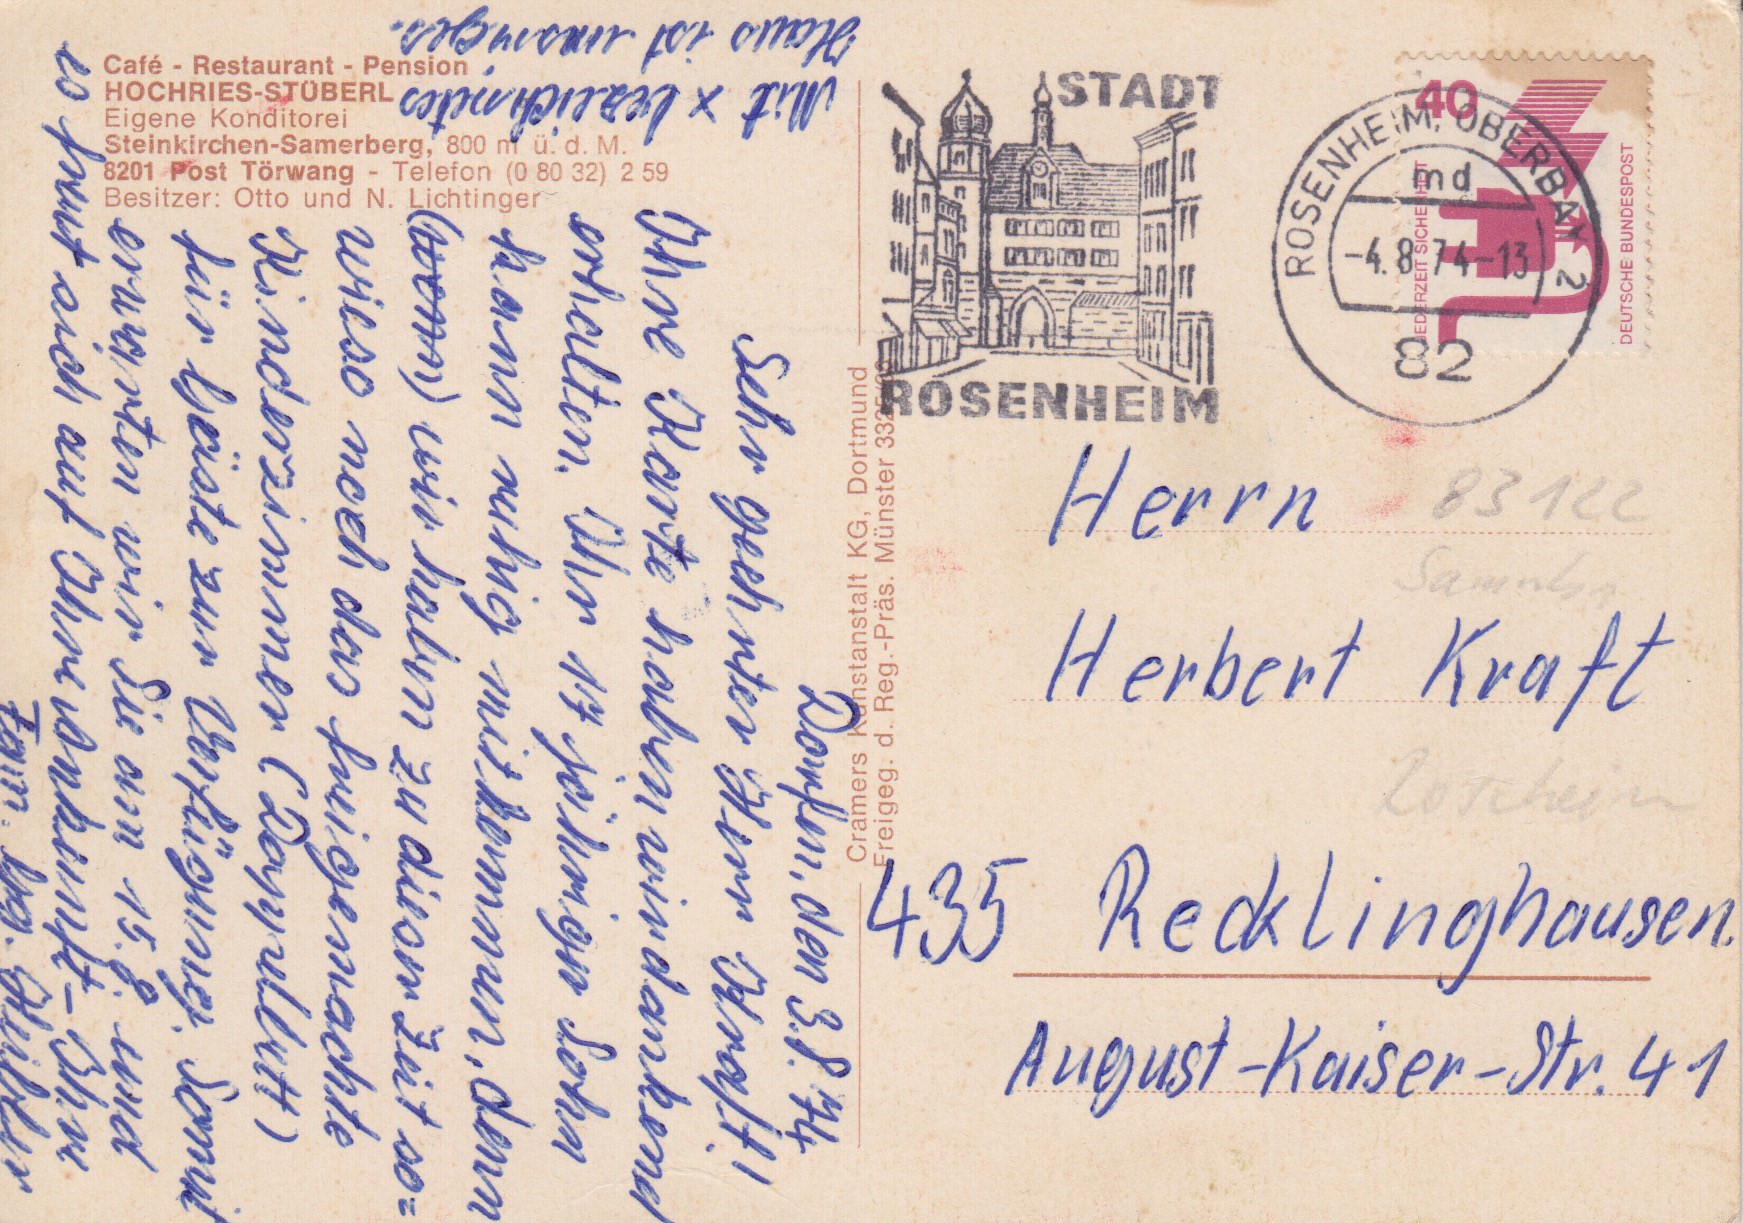 Café - Restaurant - Pension
HOCHRIES-STÜBERL
Eigene Konditorei
Steinkirchen-Samerberg, 800 m ü. d. M.
8201 Post Törwang - Telefon (0 80 32) 2 59
Besitzer: Otto und N. Lichtinger
Mit x bezeichnetes
Haus ist unsriges.
Dorfen, den 3.8.74
Sehr geehrter Herr Kraft!
Ihre Karte haben wir dankend
erhalten. Ihr 17 jähriger Sohn
kann ruhig mitkommen, denn
wir haben zu dieser Zeit so=
wieso noch das freigemachte
Kinderzimmer (Doppelbett)
für Gäste zur Verfügung. Somit
erwarten wir Sie am 15.8. und
es freut sich auf Ihre Ankunft – Ihre
Fam.
Cramers Kunstanstalt KG, Dortmund
Freigeg. d. Reg.-Präs. Münster
STADT
ROSENHEIM
ROSENHEIM, OBERBAY 2
md
-4.8.74-13
82
40
JEDERZEIT SICHERHEIT
DEUTSCHE BUNDESPOST
Herrn
83122
Herbert Kraft
435 Recklinghausen.
August-Kaiser-Str. 41